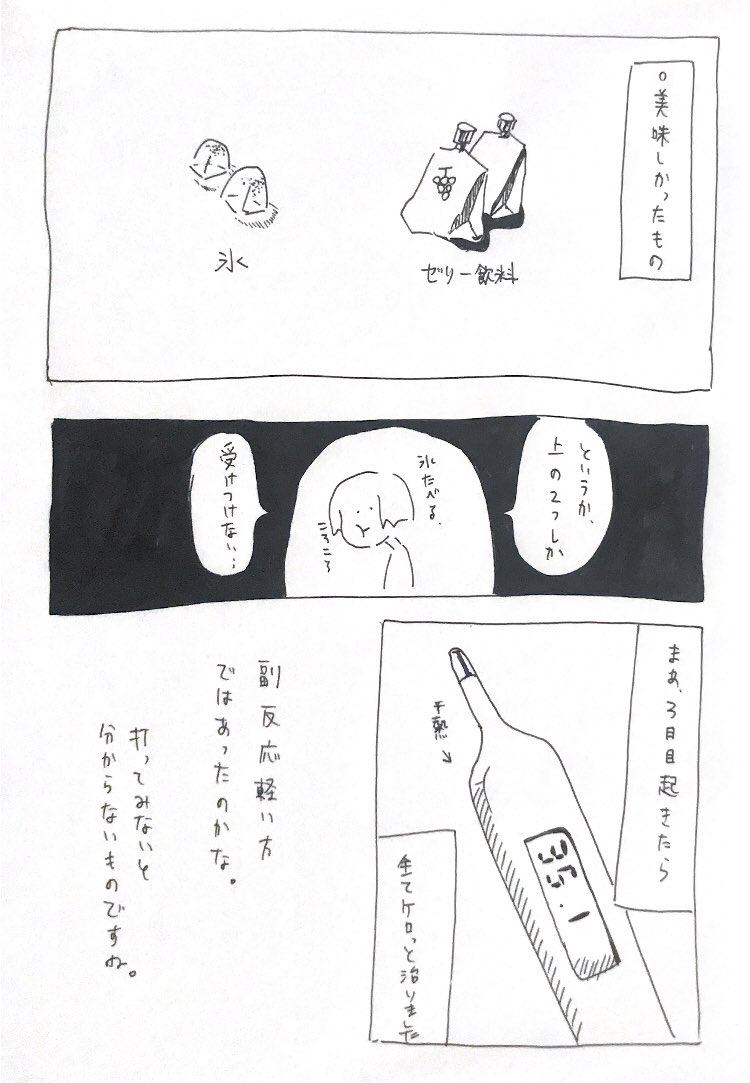 ○美味しかったもの
ゼリー飲料
氷
というか、
上の2つしか
氷たべる.
ころころ
受けつけない…
まあ、3日目起きたら
平熱
35.1
全てケロっと治りました
副反応軽い方
ではあったのかな。
打ってみないと
分からないものですね。